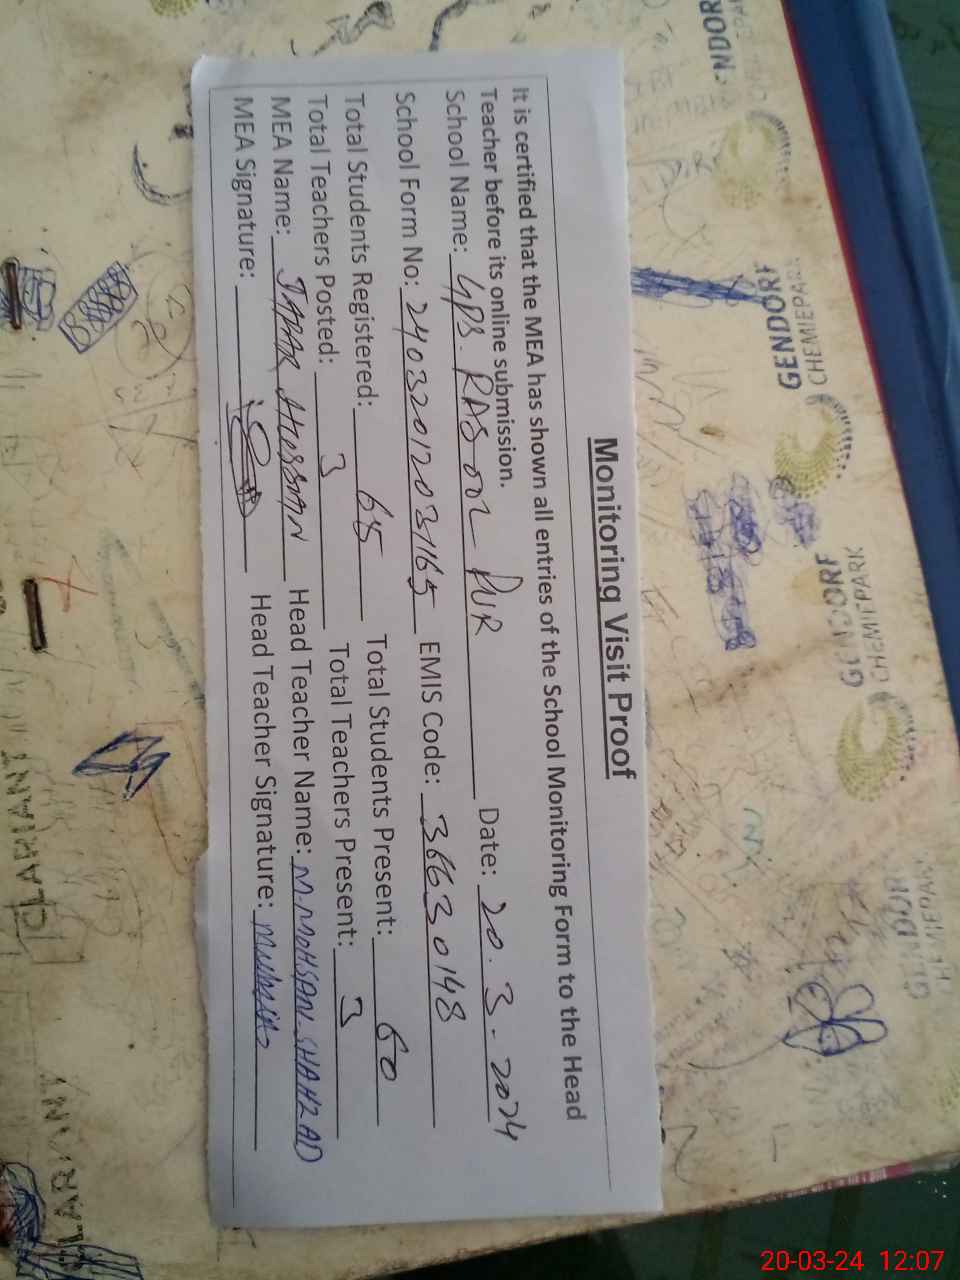 Monitoring Visit Proof
It is certified that the MEA has shown all entries of the School Monitoring Form to the Head
Teacher before its online submission.
School Name: GPS. RASOOL PUR Date: 20.3.2024
School Form No: 2403201203165 EMIS Code: 36630148
Total Students Registered: 65 Total Students Present: 60
Total Teachers Posted: 3 Total Teachers Present: 3
MEA Name: JAFAR HUSSAIN Head Teacher Name: M.MOHSAN.SHAHZAD
MEA Signature: Head Teacher Signature:
GENDORF
CHEMIEPARK
GENDORF
CHEMIEPARK
CLARIANT
20-03-24 12:07